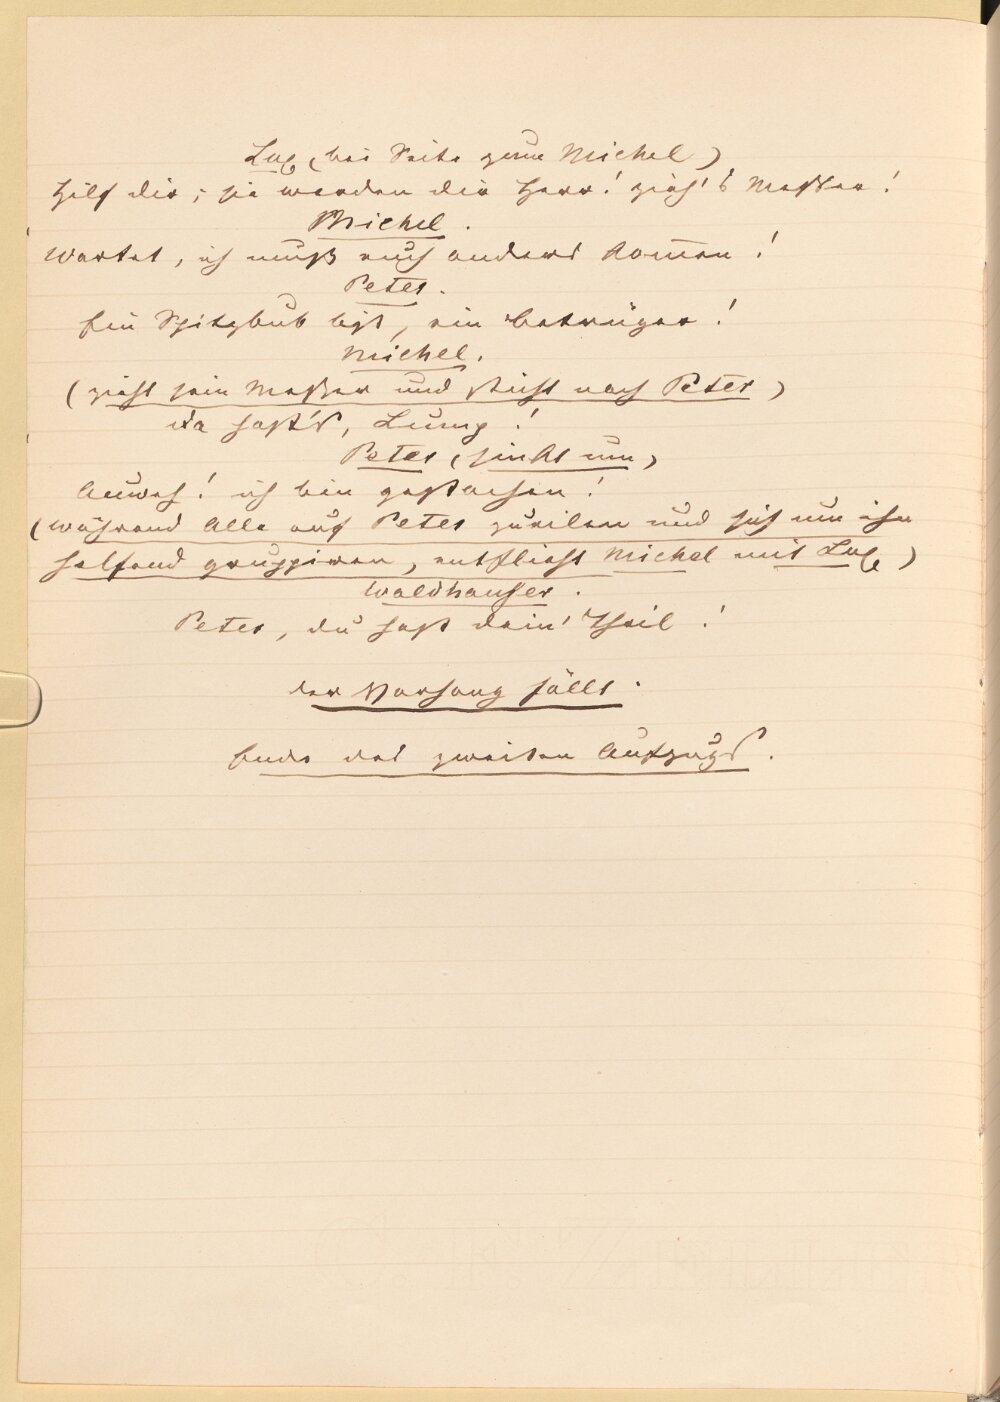 Lux (bei Seite zum Michel)
Hilf dir; sie werden dir Herr! zieh's Messer!
Michel.
Wartet, ich muß euch anders kom̄en!
Peter.
Ein Spitzbub bist, ein Betrüger!
Michel.
(zieht sein Messer und sticht nach Peter)
Da hast's, Lump!
Peter (sinkt um)
Auweh! ich bin gestochen!
(während Alle auf Peter zueilen und sich um ihn
helfend gruppiren, entflieht Michel mit Lux)
Waldhauser.
Peter, du hast dein' Theil!
Der Vorhang fällt.
Ende des zweiten Aufzugs.